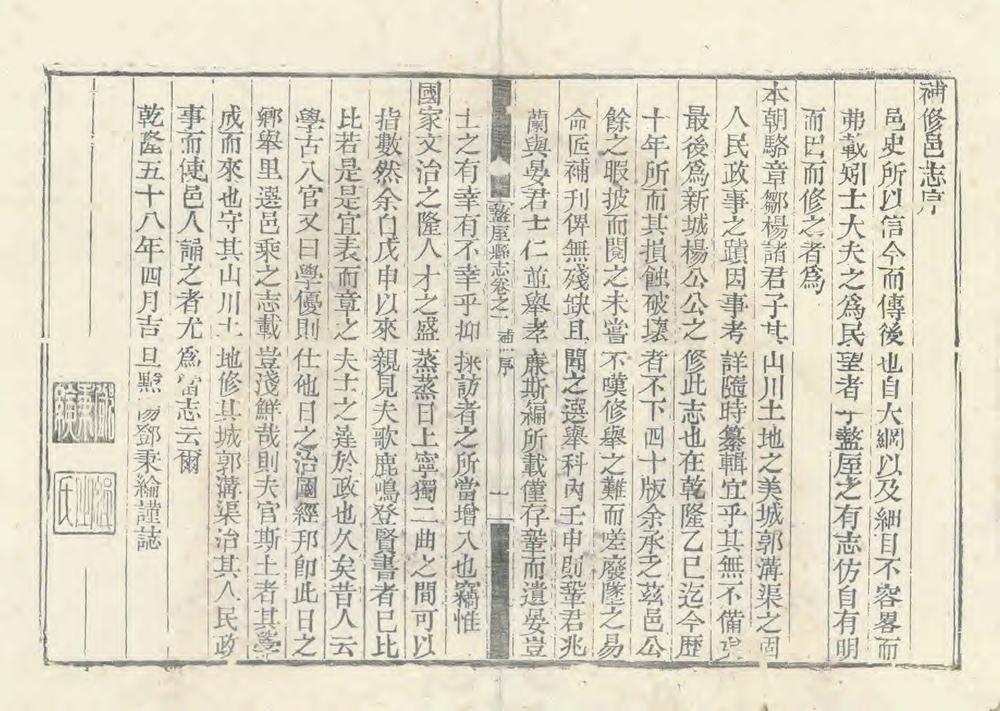 補修邑志序
邑史所以信今而傳後也自大綱以及細目不容畧而
弗載矧士大夫之爲民望者乎盩厔之有志仿自有明
而已而修之者爲
本朝駱章鄒楊諸君子其山川土地之美城郭溝渠之固
人民政事之蹟因事考詳隨時纂輯宜乎其無不備
最後爲新城楊公公之修此志也在乾隆乙巳迄今歷
十年所而其損蝕破壞者不下四十版余承乏茲邑公
餘之暇披而閱之未嘗不嘆修舉之難而嗟廢墜之易
命匠補刊俾無殘缺且閱之選舉科內壬申則鞏君兆
蘭與晏君士仁並舉孝廉斯編所載僅存鞏而遺晏豈
盩厔縣志卷之一 補序 一
士之有幸有不幸乎抑採訪者之所當增入也竊惟
國家文治之隆人才之盛蒸蒸日上寧獨二曲之間可以
指數然余自戊申以來親見夫歌鹿鳴登賢書者已比
比若是是宜表而章之夫士之達於政也久矣昔人云
學古入官又曰學優則仕他日之治國經邦即此日之
鄉舉里選邑乘之志載豈淺鮮哉則夫官斯土者其學
成而來也守其山川土地修其城郭溝渠治其人民政
事而使邑人誦之者尤爲當志云爾
乾隆五十八年四月吉旦黟陽鄧秉綸謹誌